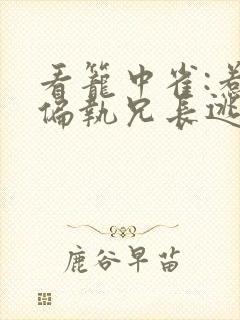 看籠中雀:惹
偏執兄長逃
鹿谷早苗